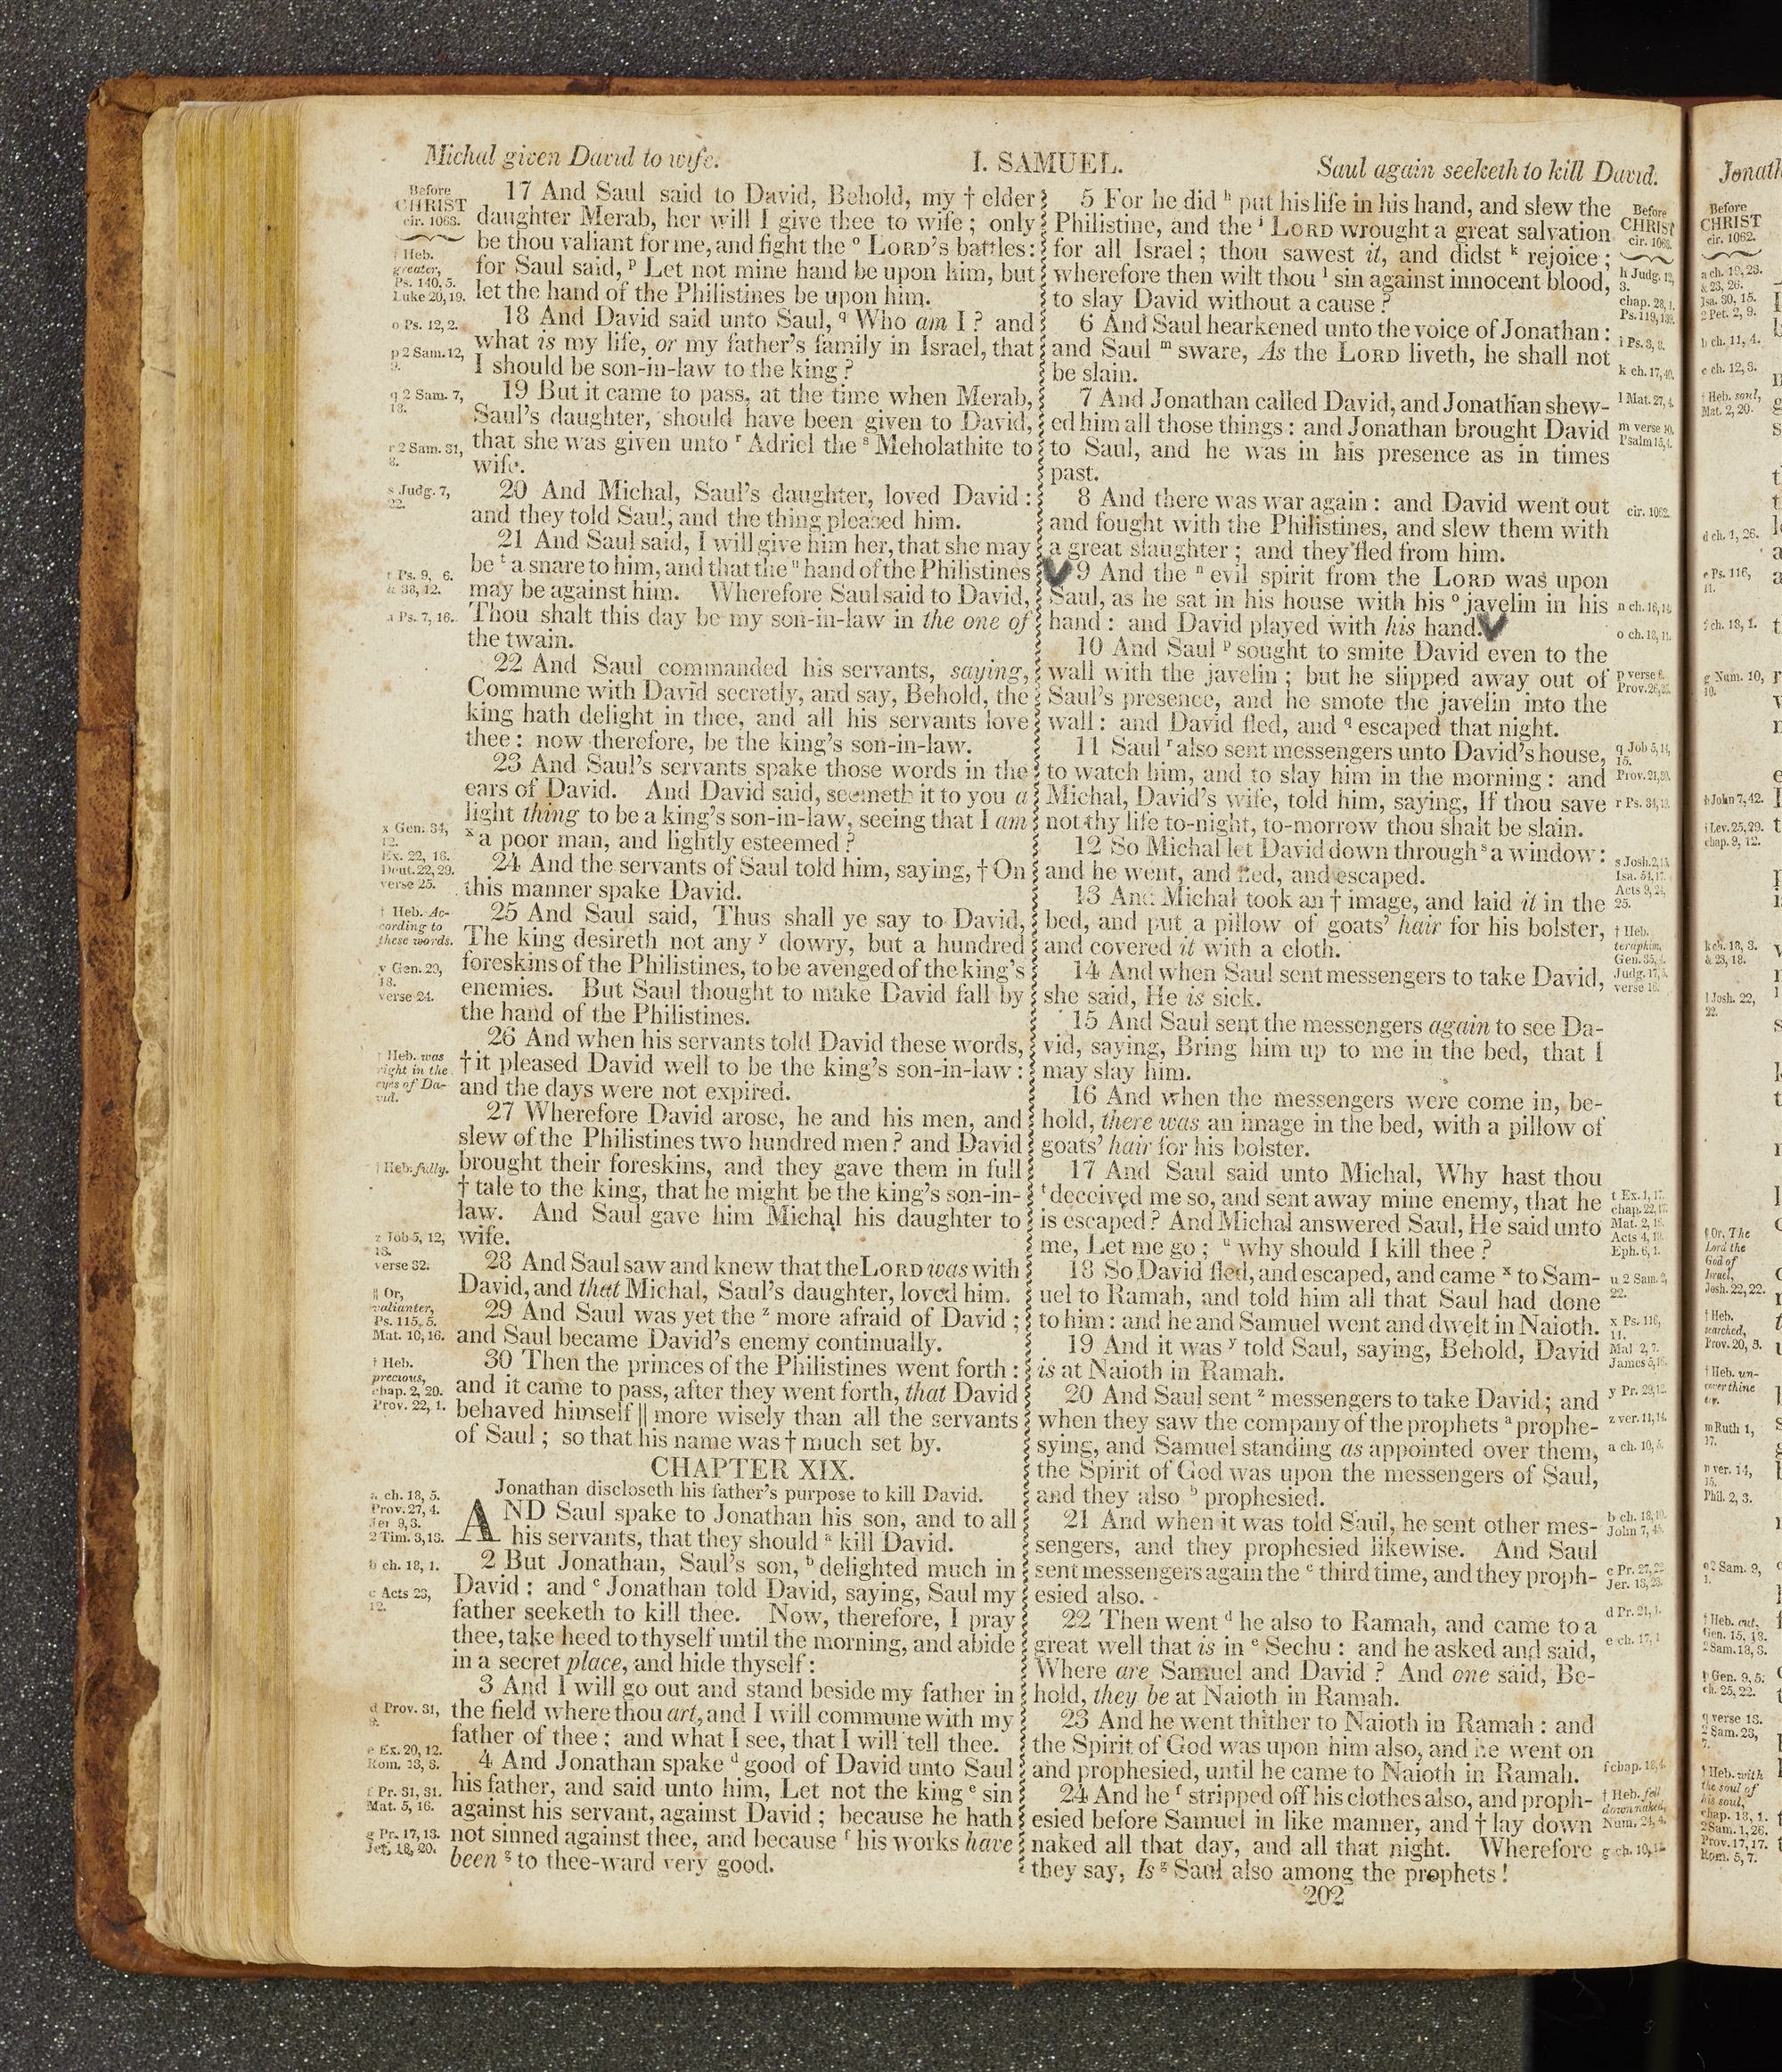 Michal given David to wife.
I. SAMUEL.
Saul again seeketh to kill David.
Before
CHRIST
cir. 1063.
† Heb.
greater,
Ps. 140, 5.
Luke 20, 19.
o Ps. 12, 2.
p 2 Sam. 12,
9.
q 2 Sam. 7,
18.
r 2 Sam. 31,
8.
s Judg. 7,
22.
t Ps. 9, 6.
& 38, 12.
u Ps. 7, 16.
x Gen. 34,
12.
Ex. 22, 16.
Deut. 22, 29.
verse 25.
† Heb. Ac-
cording to
these words.
y Gen. 29,
18.
verse 24.
† Heb. was
right in the
eyes of Da-
vid.
† Heb. fully.
z Job 5, 12,
13.
verse 32.
|| Or,
valianter,
Ps. 115, 5.
Mat. 10, 16.
† Heb.
precious,
chap. 2, 20.
Prov. 22, 1.
a ch. 18, 5.
Prov. 27, 4.
Jer 9, 3.
2 Tim. 3, 13.
b ch. 18, 1.
c Acts 23,
12.
d Prov. 31,
9.
e Ex. 20, 12.
Rom. 13, 3.
f Pr. 31, 31.
Mat. 5, 16.
g Pr. 17, 13.
Jer. 18, 20.
17 And Saul said to David, Behold, my † elder
daughter Merab, her will I give thee to wife; only
be thou valiant for me, and fight the o LORD's battles:
for Saul said, p Let not mine hand be upon him, but
let the hand of the Philistines be upon him.
18 And David said unto Saul, q Who am I? and
what is my life, or my father's family in Israel, that
I should be son-in-law to the king?
19 But it came to pass, at the time when Merab,
Saul's daughter, should have been given to David,
that she was given unto r Adriel the s Meholathite to
wife.
20 And Michal, Saul's daughter, loved David:
and they told Saul, and the thing pleased him.
21 And Saul said, I will give him her, that she may
be t a snare to him, and that the u hand of the Philistines
may be against him. Wherefore Saul said to David,
Thou shalt this day be my son-in-law in the one of
the twain.
22 And Saul commanded his servants, saying,
Commune with David secretly, and say, Behold, the
king hath delight in thee, and all his servants love
thee: now therefore, be the king's son-in-law.
23 And Saul's servants spake those words in the
ears of David. And David said, seemeth it to you a
light thing to be a king's son-in-law, seeing that I am
x a poor man, and lightly esteemed?
24 And the servants of Saul told him, saying, † On
this manner spake David.
25 And Saul said, Thus shall ye say to David,
The king desireth not any y dowry, but a hundred
foreskins of the Philistines, to be avenged of the king's
enemies. But Saul thought to make David fall by
the hand of the Philistines.
26 And when his servants told David these words,
† it pleased David well to be the king's son-in-law:
and the days were not expired.
27 Wherefore David arose, he and his men, and
slew of the Philistines two hundred men? and David
brought their foreskins, and they gave them in full
† tale to the king, that he might be the king's son-in-
law. And Saul gave him Michal his daughter to
wife.
28 And Saul saw and knew that the LORD was with
David, and that Michal, Saul's daughter, loved him.
29 And Saul was yet the z more afraid of David;
and Saul became David's enemy continually.
30 Then the princes of the Philistines went forth:
and it came to pass, after they went forth, that David
behaved himself || more wisely than all the servants
of Saul; so that his name was † much set by.
CHAPTER XIX.
Jonathan discloseth his father's purpose to kill David.
AND Saul spake to Jonathan his son, and to all
his servants, that they should a kill David.
2 But Jonathan, Saul's son, b delighted much in
David: and c Jonathan told David, saying, Saul my
father seeketh to kill thee. Now, therefore, I pray
thee, take heed to thyself until the morning, and abide
in a secret place, and hide thyself:
3 And I will go out and stand beside my father in
the field where thou art, and I will commune with my
father of thee; and what I see, that I will tell thee.
4 And Jonathan spake d good of David unto Saul
his father, and said unto him, Let not the king e sin
against his servant, against David; because he hath
not sinned against thee, and because f his works have
been g to thee-ward very good.
5 For he did h put his life in his hand, and slew the
Philistine, and the i LORD wrought a great salvation
for all Israel; thou sawest it, and didst k rejoice;
wherefore then wilt thou l sin against innocent blood,
to slay David without a cause?
6 And Saul hearkened unto the voice of Jonathan:
and Saul m sware, As the LORD liveth, he shall not
be slain.
7 And Jonathan called David, and Jonathan shew-
ed him all those things: and Jonathan brought David
to Saul, and he was in his presence as in times
past.
8 And there was war again: and David went out
and fought with the Philistines, and slew them with
a great slaughter; and they fled from him.
9 And the n evil spirit from the LORD was upon
Saul, as he sat in his house with his o javelin in his
hand: and David played with his hand.
10 And Saul p sought to smite David even to the
wall with the javelin; but he slipped away out of
Saul's presence, and he smote the javelin into the
wall: and David fled, and q escaped that night.
11 Saul r also sent messengers unto David's house,
to watch him, and to slay him in the morning: and
Michal, David's wife, told him, saying, If thou save
not thy life to-night, to-morrow thou shalt be slain.
12 So Michal let David down through s a window:
and he went, and fled, and escaped.
13 And Michal took an † image, and laid it in the
bed, and put a pillow of goats' hair for his bolster,
and covered it with a cloth.
14 And when Saul sent messengers to take David,
she said, He is sick.
15 And Saul sent the messengers again to see Da-
vid, saying, Bring him up to me in the bed, that I
may slay him.
16 And when the messengers were come in, be-
hold, there was an image in the bed, with a pillow of
goats' hair for his bolster.
17 And Saul said unto Michal, Why hast thou
t deceived me so, and sent away mine enemy, that he
is escaped? And Michal answered Saul, He said unto
me, Let me go; u why should I kill thee?
18 So David fled, and escaped, and came x to Sam-
uel to Ramah, and told him all that Saul had done
to him: and he and Samuel went and dwelt in Naioth.
19 And it was y told Saul, saying, Behold, David
is at Naioth in Ramah.
20 And Saul sent z messengers to take David; and
when they saw the company of the prophets a prophe-
sying, and Samuel standing as appointed over them,
the Spirit of God was upon the messengers of Saul,
and they also b prophesied.
21 And when it was told Saul, he sent other mes-
sengers, and they prophesied likewise. And Saul
sent messengers again the c third time, and they proph-
esied also.
22 Then went d he also to Ramah, and came to a
great well that is in e Sechu: and he asked and said,
Where are Samuel and David? And one said, Be-
hold, they be at Naioth in Ramah.
23 And he went thither to Naioth in Ramah: and
the Spirit of God was upon him also, and he went on
and prophesied, until he came to Naioth in Ramah.
24 And he f stripped off his clothes also, and proph-
esied before Samuel in like manner, and † lay down
naked all that day, and all that night. Wherefore
they say, Is g Saul also among the prophets!
202
Before
CHRIST
cir. 1063.
h Judg. 12,
3.
chap. 28, 1.
Ps. 119, 109.
i Ps. 3, 8.
k ch. 17,
l Mat. 27, 4.
m verse 10.
Psalm 15, 4.
cir. 1062.
n ch. 16, 14.
o ch. 18, 11.
p verse 6.
Prov. 26,
q Job 5, 14,
15.
Prov. 21, 30.
r Ps. 34,
s Josh. 2, 15.
Isa. 54, 17.
Acts 9, 24,
25.
† Heb.
teraphim,
Gen. 35, 4.
Judg. 17, 5.
verse 16.
t Ex. 1, 17.
chap. 22, 17.
Mat. 2, 16.
Acts 4, 19.
Eph. 6, 1.
u 2 Sam. 2,
22.
x Ps. 116,
11.
Mal 2, 7.
James 5, 16.
y Pr. 29, 12.
z ver. 11, 14.
a ch. 10, 5.
b ch. 18, 10.
John 7, 45.
c Pr. 27, 22
Jer. 13, 23.
d Pr. 21, 1.
e ch. 17, 1
f chap. 18, 4.
† Heb. fell
down naked,
Num. 24, 4.
g ch. 10, 12
Jonath
Before
CHRIST
cir. 1062.
a ch. 19, 23.
& 23, 26.
Isa. 30, 15.
2 Pet. 2, 9.
b ch. 11, 4.
c ch. 12, 3.
† Heb. soul,
Mat. 2, 20.
d ch. 1, 26.
e Ps. 116,
11.
f ch. 18, 1.
g Num. 10,
10.
h John 7, 42.
i Lev. 25, 29.
chap. 9, 12.
k ch. 18, 3.
& 23, 18.
l Josh. 22,
22.
|| Or, The
Lord the
God of
Israel,
Josh. 22, 22.
† Heb.
searched,
Prov. 20, 5.
† Heb. un-
cover thine
ear.
m Ruth 1,
17.
n ver. 14,
15.
Phil. 2, 3.
o 2 Sam. 9,
1.
† Heb. cut,
Gen. 15, 18.
2 Sam. 18, 3.
p Gen. 9, 5:
ch. 25, 22.
q verse 13.
2 Sam. 23,
7.
† Heb. with
the soul of
his soul,
chap. 18, 1.
2 Sam. 1, 26.
Prov. 17, 17.
Rom. 5, 7.